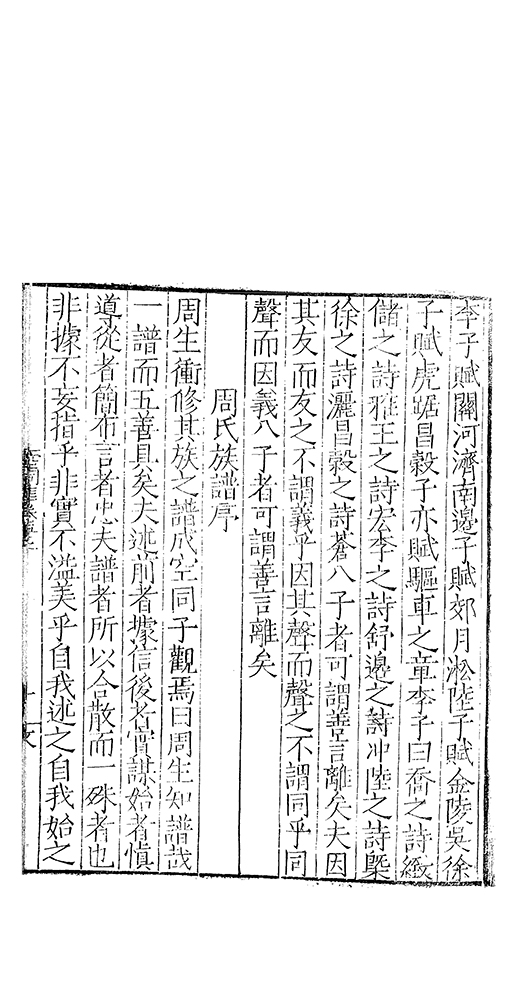 李子賦關河濟南邊子賦郊月淞陸子賦金陵吳徐
子賦虎踞昌穀子亦賦驅車之章李子曰喬之詩緻
儲之詩雅王之詩宏李之詩舒邊之詩冲陸之詩㮣
徐之詩灑昌穀之詩蒼八子者可謂善言離矣夫因
其友而友之不謂義乎因其聲而聲之不謂同乎同
聲而因義八子者可謂善言離矣
周氏族譜序
周生衝修其族之譜成空同子觀焉曰周生知譜哉
一譜而五善具矣夫述前者據信後者實謀始者愼
導從者簡布言者忠夫譜者所以合散而一殊者也
非據不妄指乎非實不濫美乎自我述之自我始之